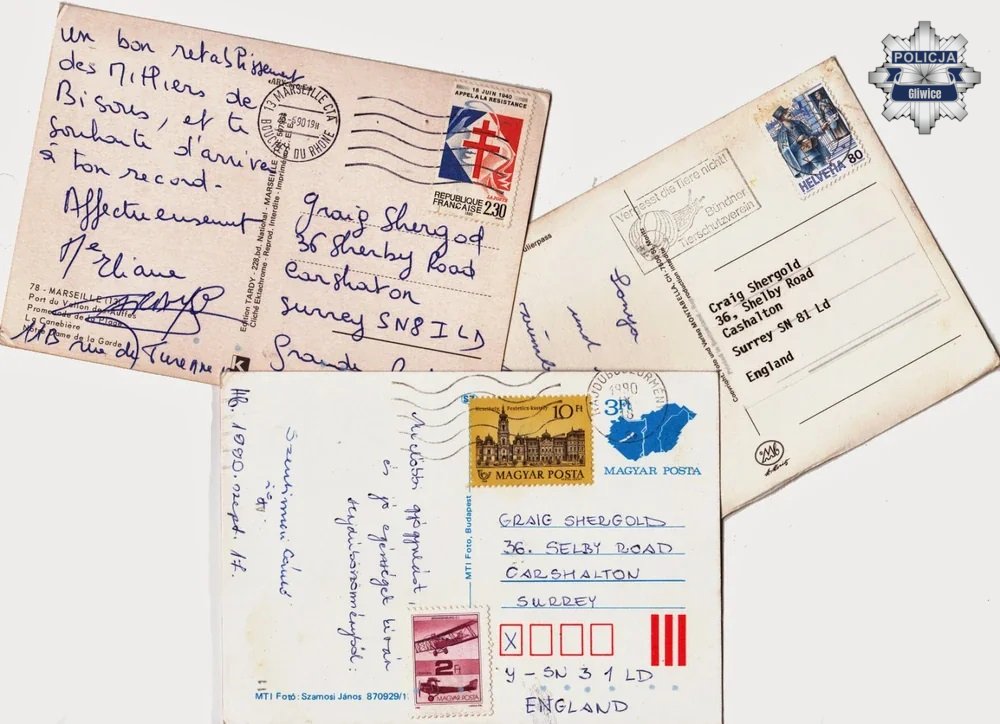 POLICJA
Gliwice
un bon retablissement
des Milliers de
Bisous, et te
souhaite d'arriver
à ton record.
Affectueusement
Mme Eliane
78 - MARSEILLE (13)
Port du Vallon des Auffes
Promenade de la Plage
La Canebière
Notre Dame de la Garde
11B rue de Turenne
Edition TARDY - 228, bd. National - MARSEILLE
Cliché Ektachrome - Reprod. Interdite - Imprimé
13 MARSEILLE CTA
BOUCHES DU RHONE
18 JUIN 1940
APPEL A LA RESISTANCE
REPUBLIQUE
FRANÇAISE 2,30
Graig Shergod
36 Sherby Road
Carshaton
Surrey SN8 1LD
Grande
Vergesst die Tiere nicht!
Bündner
Tierschutzverein
HELVETIA 80
Sonya
und
Craig Shergold
36, Shelby Road
Cashalton
Surrey SN 81 Ld
England
Hb. 1990. szept. 17.
Mielőbbi gyógyulást,
és jó egészséget kíván
Hajdúböszörményből:
MTI Fotó, Budapest
MTI Fotó: Szamosi János 870929/1
10 Ft
MAGYAR POSTA
2 Ft
MAGYAR POSTA
HAJDÚBÖSZÖRMÉNY
1990
3Ft
MAGYAR POSTA
GRAIG SHERGOLD
36. SELBY ROAD
CARSHALTON
SURREY
X
Y - SN 3 1 LD
ENGLAND